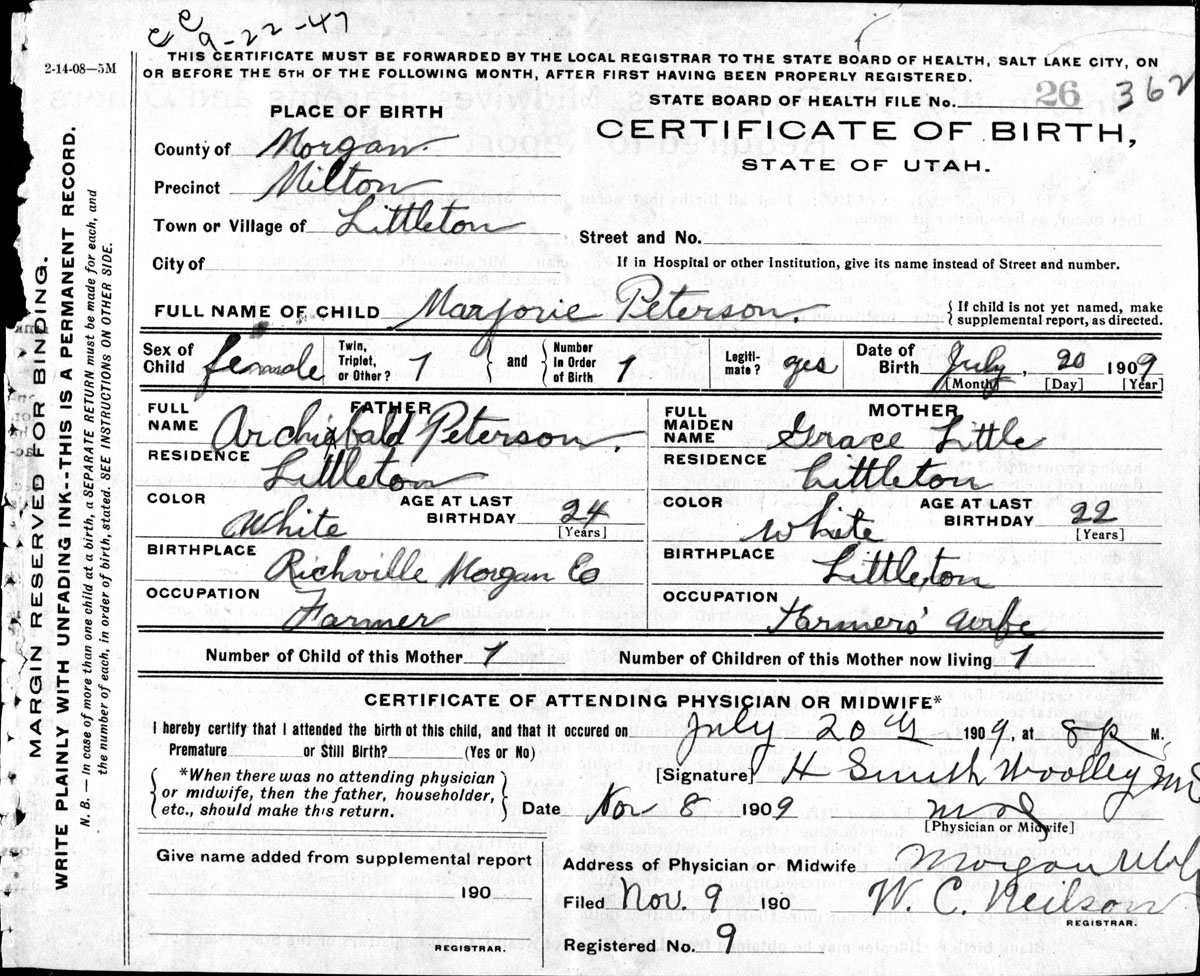 CC
9-22-47
2-14-08—5M
THIS CERTIFICATE MUST BE FORWARDED BY THE LOCAL REGISTRAR TO THE STATE BOARD OF HEALTH, SALT LAKE CITY, ON
OR BEFORE THE 5TH OF THE FOLLOWING MONTH, AFTER FIRST HAVING BEEN PROPERLY REGISTERED.
STATE BOARD OF HEALTH FILE No. 26 362
PLACE OF BIRTH
CERTIFICATE OF BIRTH,
STATE OF UTAH.
County of Morgan.
Precinct Milton
Town or Village of Littleton
Street and No.
City of
If in Hospital or other Institution, give its name instead of Street and number.
FULL NAME OF CHILD Marjorie Peterson. { If child is not yet named, make
supplemental report, as directed.
Sex of Child female Twin, Triplet, or Other? 1 } and { Number In Order of Birth 1 Legiti-mate? yes Date of Birth July, 20 1909
[Month] [Day] [Year]
FATHER
FULL NAME Archibald Peterson.
RESIDENCE Littleton
COLOR White AGE AT LAST BIRTHDAY 24
[Years]
BIRTHPLACE Richville Morgan Co
OCCUPATION Farmer
MOTHER
FULL MAIDEN NAME Grace Little
RESIDENCE Littleton
COLOR White AGE AT LAST BIRTHDAY 22
[Years]
BIRTHPLACE Littleton
OCCUPATION Farmers' Wife
Number of Child of this Mother 1 Number of Children of this Mother now living 1
CERTIFICATE OF ATTENDING PHYSICIAN OR MIDWIFE*
I hereby certify that I attended the birth of this child, and that it occured on July 20th 1909, at 8 P M.
Premature or Still Birth? (Yes or No)
{ *When there was no attending physician
or midwife, then the father, householder,
etc., should make this return. }
[Signature] H Smith Woolley MD
Date Nov 8 1909
[Physician or Midwife]
Give name added from supplemental report
190
REGISTRAR.
Address of Physician or Midwife Morgan Utah
Filed Nov. 9 190 W. C. Neilson
REGISTRAR.
Registered No. 9
MARGIN RESERVED FOR BINDING.
WRITE PLAINLY WITH UNFADING INK--THIS IS A PERMANENT RECORD.
N. B. — In case of more than one child at a birth, a SEPARATE RETURN must be made for each, and
the number of each, in order of birth, stated. SEE INSTRUCTIONS ON OTHER SIDE.